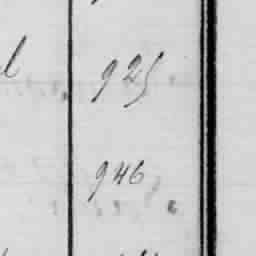 925
946